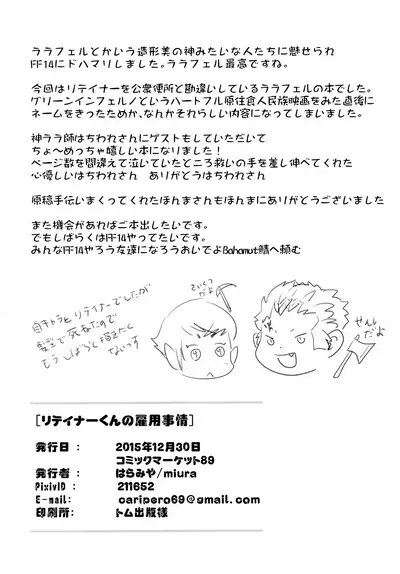 ララフェルとかいう造形美の神みたいな人たちに魅せられ
FF14にドハマりしました。ララフェル最高ですね。
今回はリテイナーを公衆便所と勘違いしているララフェルの本でした。
グリーンインフェルノというハートフル原住食人民族映画をみた直後に
ネームをきったためか、なんかそれらしい内容になってしまいました。
神ララ師はちわれさんにゲストもしていただいて
ちょ〜めっちゃ嬉しい本になりました！
ページ数を間違えて泣いていたところ救いの手を差し伸べてくれた
心優しいはちわれさん ありがとうはちわれさん
原稿手伝いまくってくれたほんまさんもほんまにありがとうございました
また機会があればご本出したいです。
でもしばらくはFF14やってたいです。
みんなFF14やろう友達になろうおいでよBahamut鯖へ頼む
自キャラとリテイナーでしたが
髪型で死ねたので
もうしばらく描きたく
ないっす
さいくつ
だよ
せんし
だよ
[リテイナーくんの雇用事情]
発行日： 2015年12月30日
コミックマーケット89
発行者： はらみや/miura
PixivID： 211652
E-mail： caripero69@gmail.com
印刷所： トム出版様